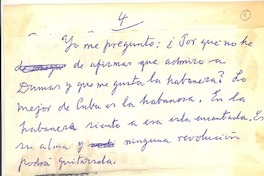 4
Yo me pregunto: ¿Por que no he
de afirmar que admiro a
Dumas y que me gusta la habanera? Lo
mejor de Cuba es la habanera. En la
habanera siento a esa isla encantada. Es
su alma y ninguna revolución
podrá quitarsela.